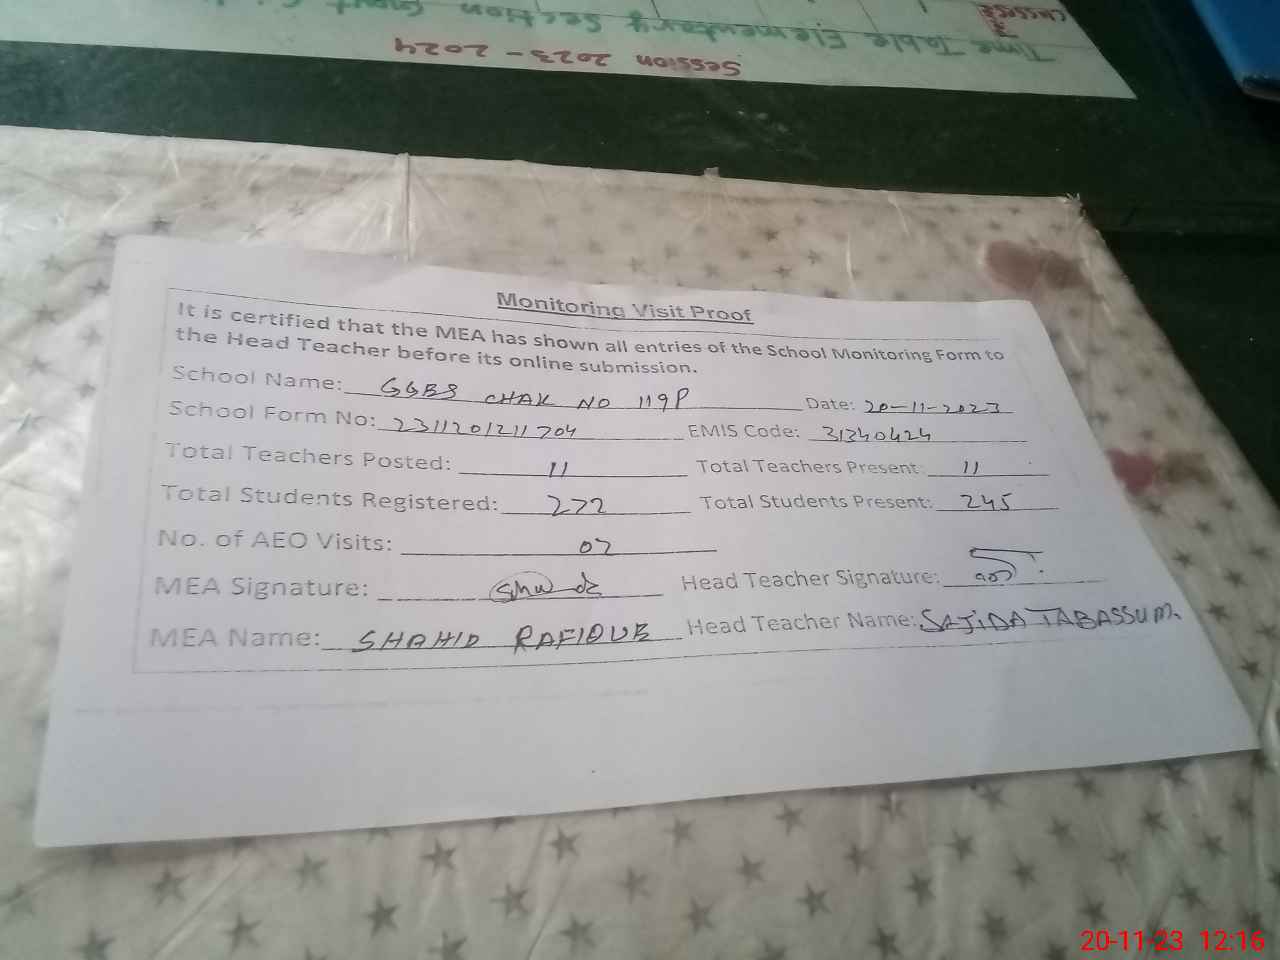 Time Table Elementary Section
Classes
Session 2023-2024
Monitoring Visit Proof
It is certified that the MEA has shown all entries of the School Monitoring Form to
the Head Teacher before its online submission.
School Name: GGES CHAK NO 119P Date: 20-11-2023
School Form No: 2311201211704 EMIS Code: 31340424
Total Teachers Posted: 11 Total Teachers Present: 11
Total Students Registered: 272 Total Students Present: 245
No. of AEO Visits: 02
MEA Signature: Head Teacher Signature:
MEA Name: SHAHID RAFIQUE Head Teacher Name: SAJIDA TABASSUM.
20-11-23 12:16